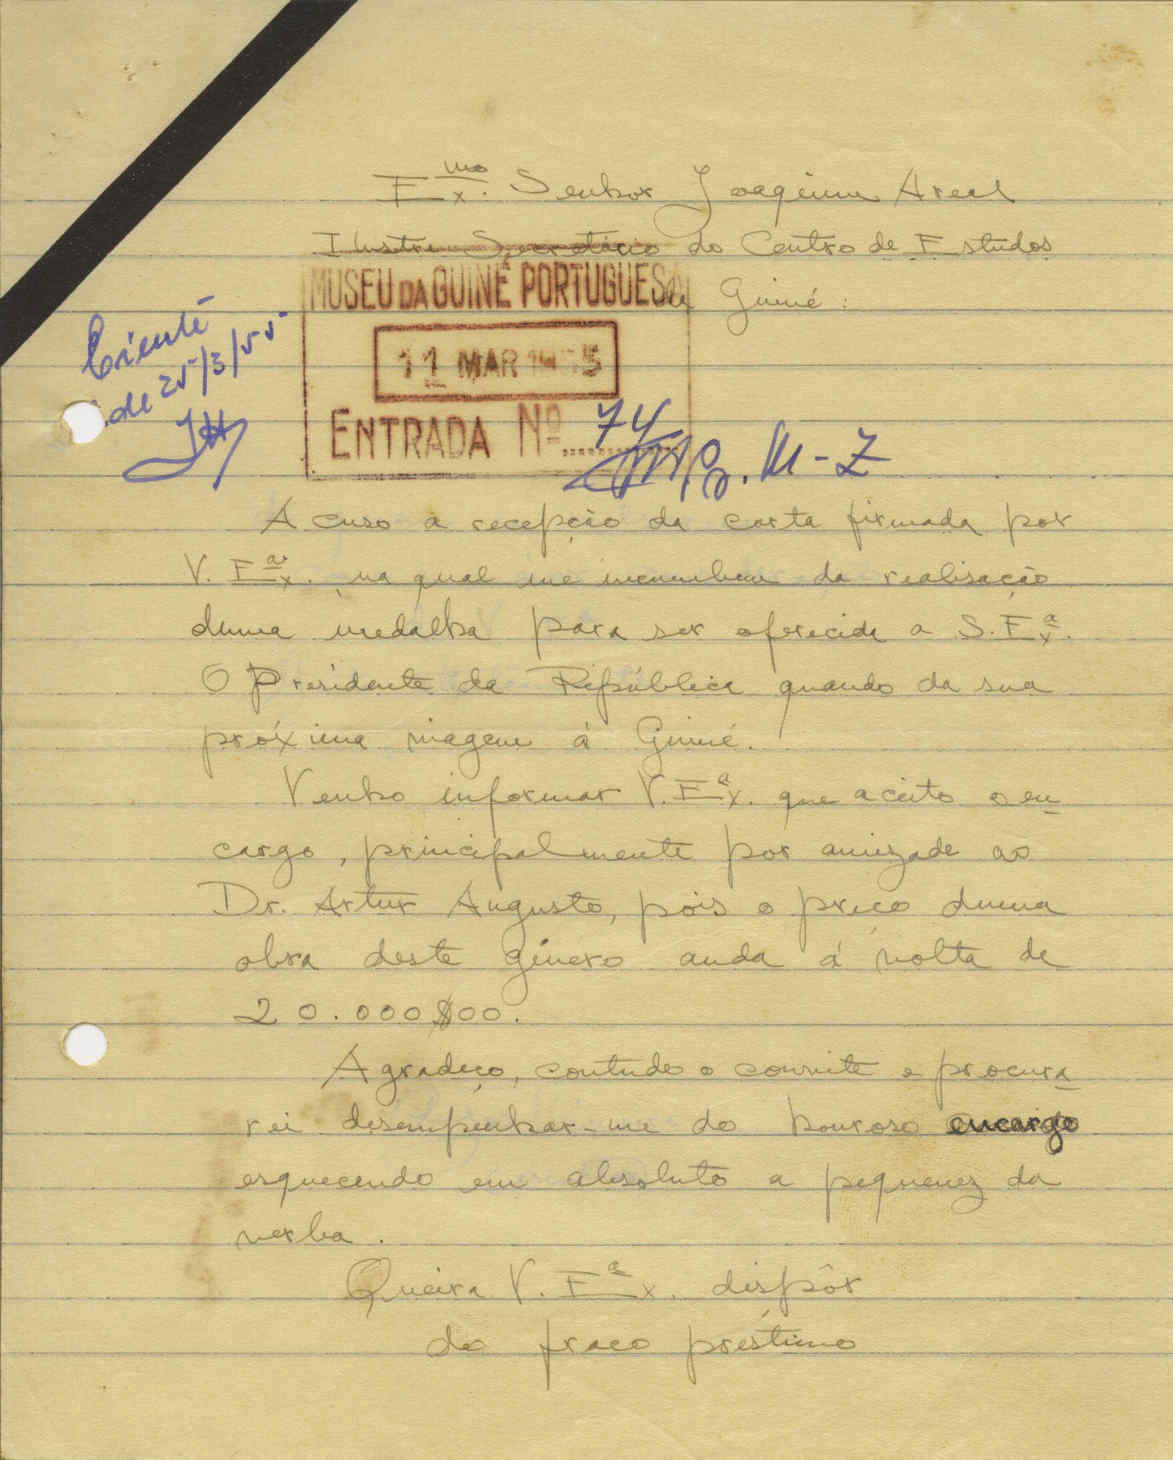 Exmo. Senhor Joaquim Areal
Ilustre Secretário do Centro de Estudos
da Guiné:
MUSEU DA GUINÉ PORTUGUESA
11 MAR 1955
ENTRADA Nº 74
Ciente
de 25/3/55
P. M-Z
Acuso a recepção da carta firmada por
V. Exª. na qual me incumbem da realisação
duma medalha para ser oferecida a S. Exª.
O Presidente da República quando da sua
próxima viagem á Guiné.
Venho informar V. Exª. que aceito o en
cargo, principalmente por amizade ao
Dr. Artur Augusto, pois o preço duma
obra deste género anda á volta de
20.000$00.
Agradeço, contudo o convite e procura
rei desempenhar-me do honroso encargo
esquecendo em absoluto a pequenez da
verba.
Queira V. Exª. dispôr
do fraco préstimo